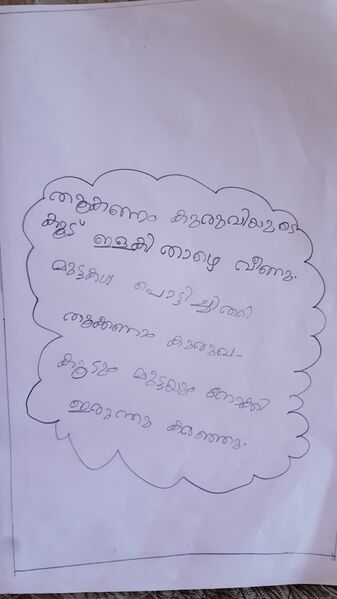 തൂക്കണാം കുരുവിയുടെ
കൂട് ഇളകി താഴെ വീണു.
മുട്ടകൾ പൊട്ടിച്ചിതറി
തൂക്കണാം കുരുവി
കൂടും മുട്ടയും നോക്കി
ഇരുന്നു കരഞ്ഞു.